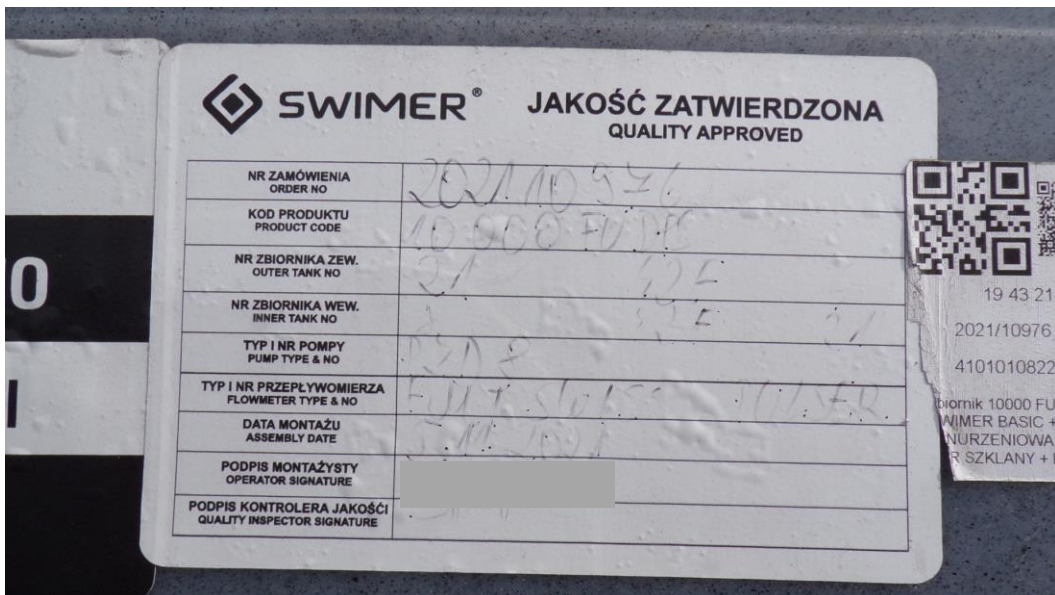 SWIMER®
JAKOŚĆ ZATWIERDZONA
QUALITY APPROVED
NR ZAMÓWIENIA
ORDER NO
2021.10976
KOD PRODUKTU
PRODUCT CODE
NR ZBIORNIKA ZEW.
OUTER TANK NO
21
NR ZBIORNIKA WEW.
INNER TANK NO
TYP I NR POMPY
PUMP TYPE & NO
TYP I NR PRZEPŁYWOMIERZA
FLOWMETER TYPE & NO
DATA MONTAŻU
ASSEMBLY DATE
PODPIS MONTAŻYSTY
OPERATOR SIGNATURE
PODPIS KONTROLERA JAKOŚĆI
QUALITY INSPECTOR SIGNATURE
0
19 43 21
2021/10976
4101010822
biornik 10000 FU
WIMER BASIC +
NURZENIOWA
R SZKLANY +